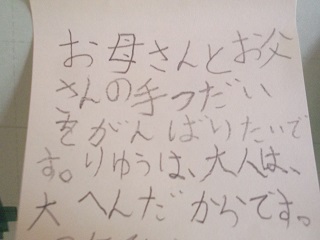 お母さんとお父
さんの手つだい
をがんばりたいで
す。りゅうは、大人は、
大へんだからです。